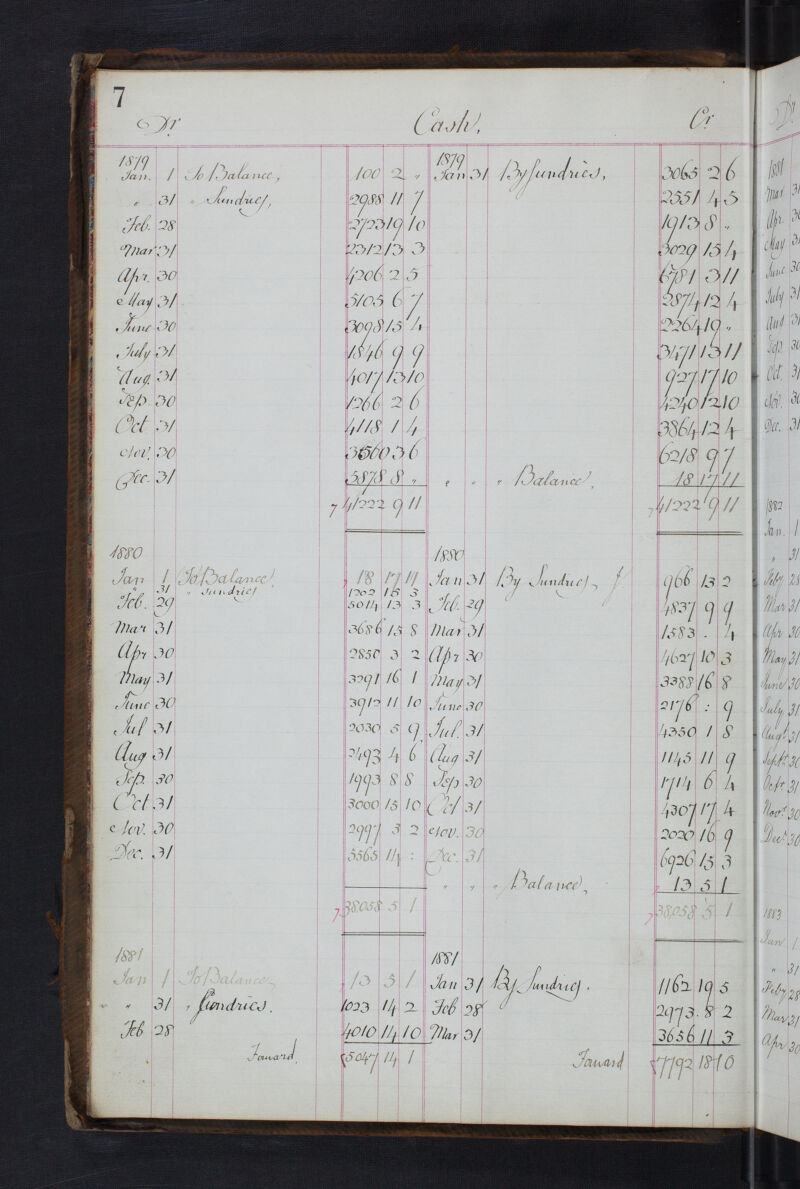 7
Dr Cash, Cr
1879 1879
Jan. 1 To Balance, 100 2 " Jan 31 By Sundries, 3065 2 6
" 31 " Sundries, 2988 11 7 2551 4 5
Feb. 28 2723 19 10 1913 8 "
Mar 31 2312 13 3 3029 15 4
Apr. 30 4206 2 5 6781 3 11
May 31 5105 6 7 2874 12 4
June 30 3098 15 4 2264 19 "
July 31 1846 9 9 3471 13 11
Aug. 31 4017 13 10 927 17 10
Sep. 30 1266 2 6 4240 12 10
Oct 31 4118 1 4 3864 12 4
Nov. 30 3560 3 6 6218 9 7
Dec. 31 5878 8 " " " " Balance, 18 17 11
41222 9 11 41222 9 11
1880 1880
Jan 1 To Balance 18 17 11 Jan 31 By Sundries, 966 13 2
" 31 " Sundries 1202 15 3
Feb. 29 5014 13 3 Feb. 29 4837 9 9
Mar 31 3686 15 8 Mar 31 1583 . 4
Apr 30 2850 3 2 Apr 30 4627 10 3
May 31 3291 16 1 May 31 3388 16 8
June 30 3912 11 10 June 30 2176 : 9
Jul 31 2030 5 9 Jul. 31 4350 1 8
Aug 31 2493 4 6 Aug 31 1145 11 9
Sep. 30 1993 8 8 Sep 30 1714 6 4
Oct 31 3000 15 10 Oct 31 4307 17 4
Nov. 30 2997 3 2 Nov. 30 2020 16 9
Dec. 31 5565 14 : Dec. 31 6926 15 3
" " " Balance, 13 5 1
38058 5 1 38058 5 1
1881 1881
Jan 1 To Balance, 13 5 1 Jan 31 By Sundries. 1162 19 5
" 31 " Sundries. 1023 14 2 Feb 28 2973 8 2
Feb 28 4010 14 10 Mar 31 3656 11 3
Forward 5047 14 1 Forward 7792 18 10
Dr
1881
Mar 31
Apr. 30
May 31
June 30
July 31
Aug 31
Sep. 30
Oct 31
Nov. 30
Dec. 31
1882
Jan. 1
" 31
Feby 28
Mar 31
Apr 30
May 31
June 30
July 31
Augt 31
Sept 30
Octr 31
Novr 30
Decr 30
1883
Jan. 1
" 31
Feby 28
Mar 31
Apr 30